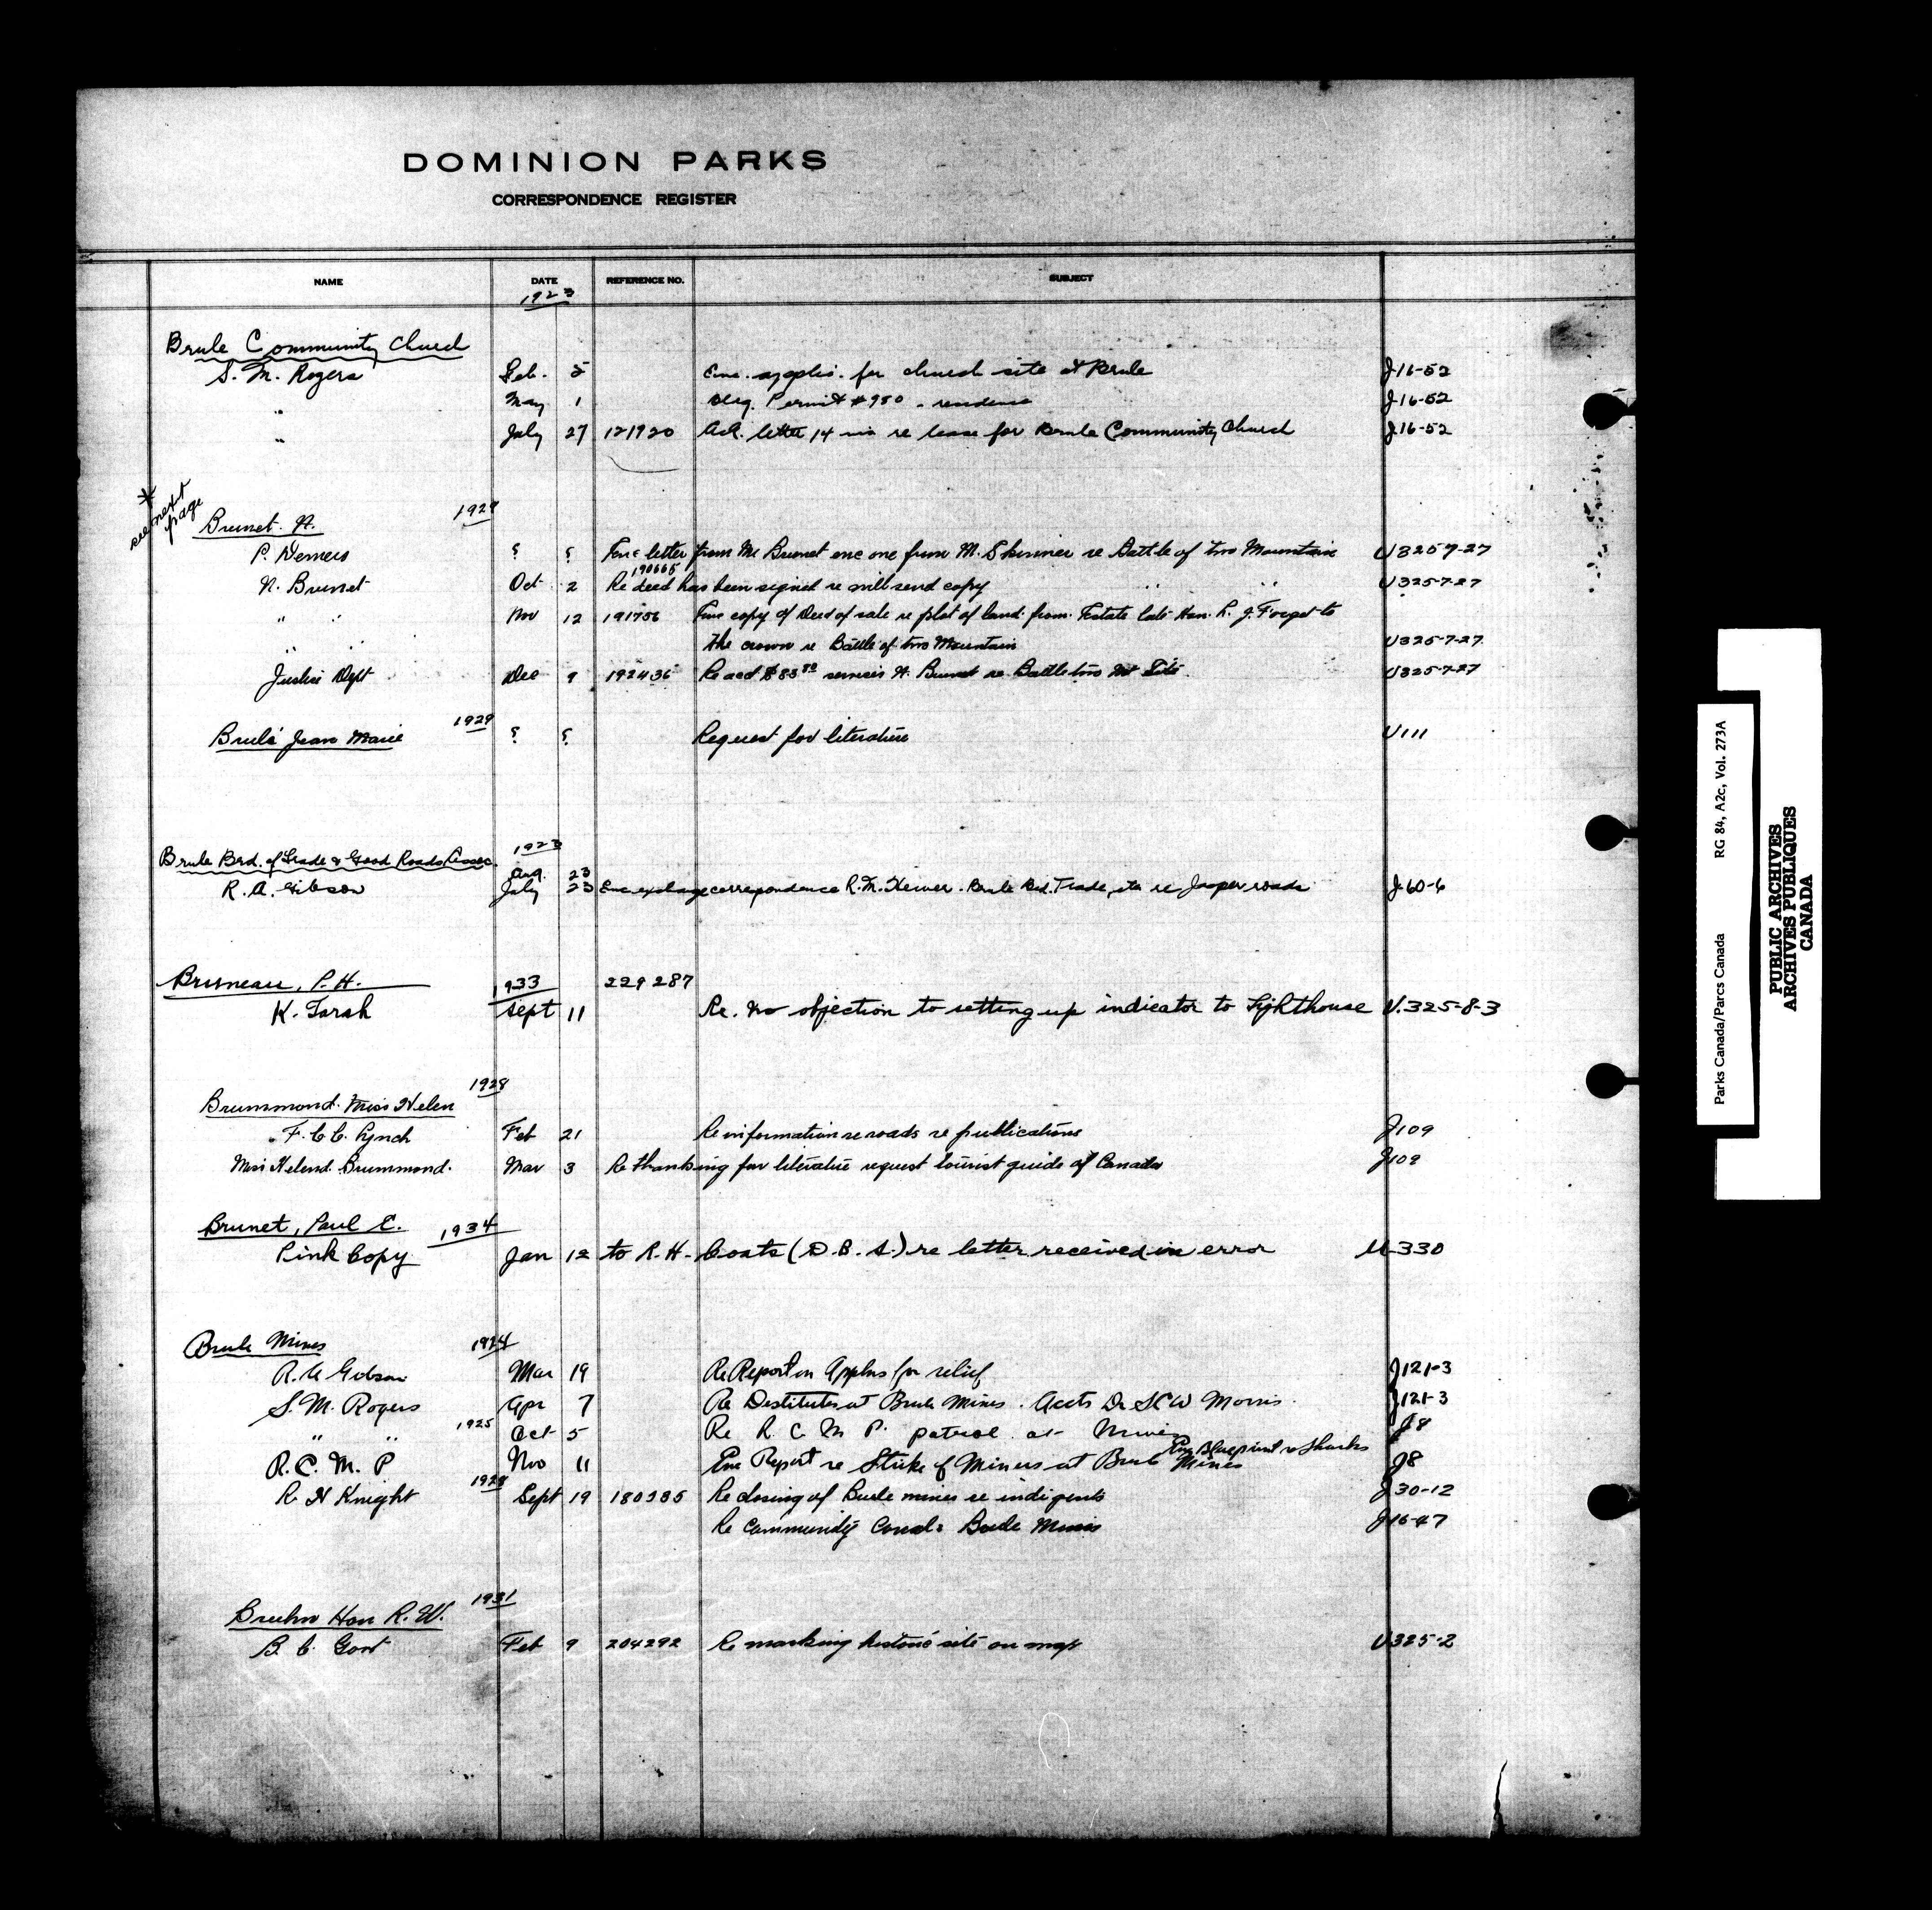 DOMINION PARKS
CORRESPONDENCE REGISTER
NAME DATE REFERENCE NO. SUBJECT
1923
Brule Community Church
S. M. Rogers Feb. 5 Enc. applic. for church site at Brule J16-52
" May 1 Permit #950 - residence J16-52
" July 27 121920 Ack. letter 14 re lease for Brule Community Church J16-52
* see next page
Brunet. N. 1929
P. Demers ? ? Enc letter from Mr Brunet enc one from M. Skinner re Battle of two Mountain U325-7-27
190665
N. Brunet Oct 2 Re deed has been signed re will send copy " " U325-7-27
" " Nov 12 191756 Enc copy of Deed of sale re plot of land from Estate late Hon. R. J. Forget to
" " the crown re Battle of two Mountain U325-7-27
Justice Dept Dec 9 192436 Re acct $83 services N. Brunet re Battle two Mt Site. U325-7-27
Brulé Jean Marie 1929 ? ? Request for literature U111
Brule Brd. of Trade & Good Roads Assoc. 1923
Aug. 23
R. A. Gibson July 23 Enc. exchange correspondence R. M. Brule Bd. Trade, etc re Jasper roads J60-6
Bruneau, P. H. 1933 229287
K. Sept 11 Re. no objection to setting up indicator to Lighthouse U.325-8-3
Brummond. Miss Helen 1928
F. C. C. Lynch Feb 21 Re information re roads re publications J109
Miss Helend. Brummond. Mar 3 Re thanking for literature request tourist guide of Canada J109
Brunet, Paul E. 1934
Pink Copy Jan 12 to R. H. Coats (D. B. S.) re letter received in error U330
Brule Mines 1924
R. A Gibson Mar 19 Re Report on Applns for relief J121-3
S. M. Rogers Apr 7 Re Destitutes at Brule Mines. Accts Dr Morris. J121-3
" " 1925 Oct 5 Re R. C. M P. patrol at Mines J8
Enc Blueprint re Shacks
R. C. M. P Nov 11 Enc Report re Strike of Miners at Brule Mines J8
R N Knight 1928 Sept 19 180385 Re closing of Brule mines re indigents J30-12
Re Community Brule Mines J16-47
Bruhn Hon R. W. 1931
B. C. Govt Feb 9 204292 Re marking historic site on map U325-2
Parks Canada/Parcs Canada RG 84, A2c, Vol. 273A
PUBLIC ARCHIVES
ARCHIVES PUBLIQUES
CANADA